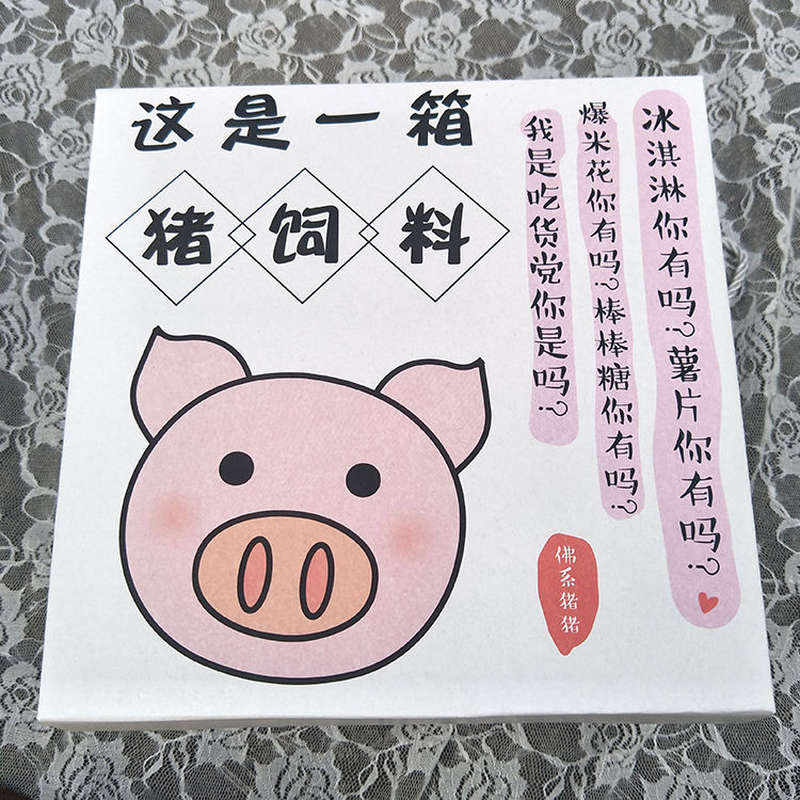 这是一箱
猪饲料
冰淇淋你有吗?薯片你有吗?
爆米花你有吗?棒棒糖你有吗?
我是吃货党你是吗?
佛系猪猪